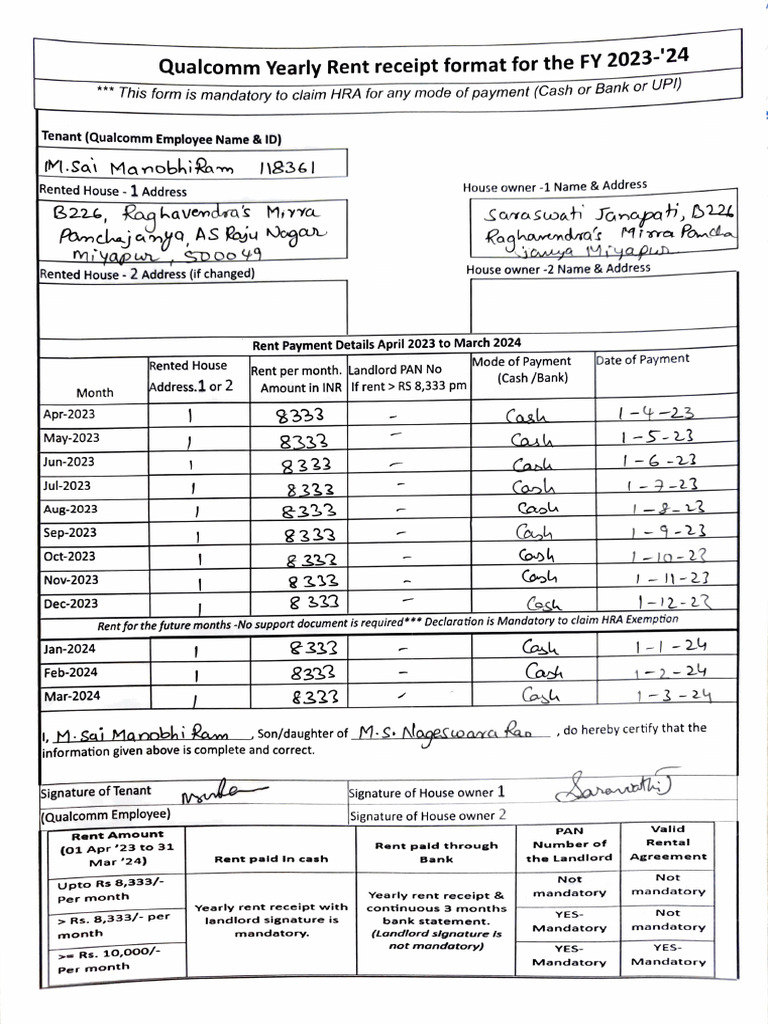 Qualcomm Yearly Rent receipt format for the FY 2023-'24
*** This form is mandatory to claim HRA for any mode of payment (Cash or Bank or UPI)
Tenant (Qualcomm Employee Name & ID)
M.Sai ManobhiRam 118361
Rented House - 1 Address
House owner -1 Name & Address
B226, Raghavendra's Mirra
Panchajanya, AS Raju Nagar
Miyapur, 500049
Saraswati Janapati, B226
Raghavendra's Mirra Pancha
janya Miyapur
Rented House - 2 Address (if changed)
House owner -2 Name & Address
Rent Payment Details April 2023 to March 2024
Month Rented House Address.1 or 2 Rent per month. Amount in INR Landlord PAN No If rent > RS 8,333 pm Mode of Payment (Cash /Bank) Date of Payment
Apr-2023 1 8333 - Cash 1-4-23
May-2023 1 8333 - Cash 1-5-23
Jun-2023 1 8333 - Cash 1-6-23
Jul-2023 1 8333 - Cash 1-7-23
Aug-2023 1 8333 - Cash 1-8-23
Sep-2023 1 8333 - Cash 1-9-23
Oct-2023 1 8333 - Cash 1-10-23
Nov-2023 1 8333 - Cash 1-11-23
Dec-2023 1 8333 - Cash 1-12-23
Rent for the future months -No support document is required*** Declaration is Mandatory to claim HRA Exemption
Jan-2024 1 8333 - Cash 1-1-24
Feb-2024 1 8333 - Cash 1-2-24
Mar-2024 1 8333 - Cash 1-3-24
I, M.Sai Manobhi Ram, Son/daughter of M.S. Nageswara Rao, do hereby certify that the
information given above is complete and correct.
Signature of Tenant
Signature of House owner 1
(Qualcomm Employee)
Signature of House owner 2
Rent Amount (01 Apr '23 to 31 Mar '24) Rent paid in cash Rent paid through Bank PAN Number of the Landlord Valid Rental Agreement
Upto Rs 8,333/- Per month
Not mandatory
Not mandatory
Yearly rent receipt with landlord signature is mandatory.
Yearly rent receipt & continuous 3 months bank statement. (Landlord signature is not mandatory)
> Rs. 8,333/- per month
YES- Mandatory
Not mandatory
>= Rs. 10,000/- Per month
YES- Mandatory
YES- Mandatory